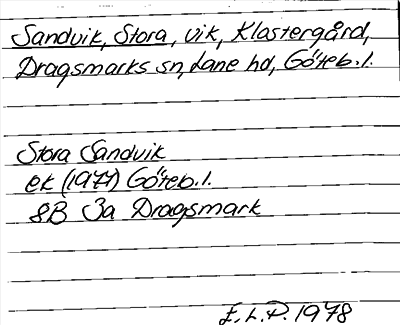 Sandvik, Stora, vik, Klastergård,
Dragsmarks sn, Lane hd, Göteb. l.
Stora Sandvik
ek (1977) Göteb. l.
8B 3a Dragsmark
E.L.P. 1978